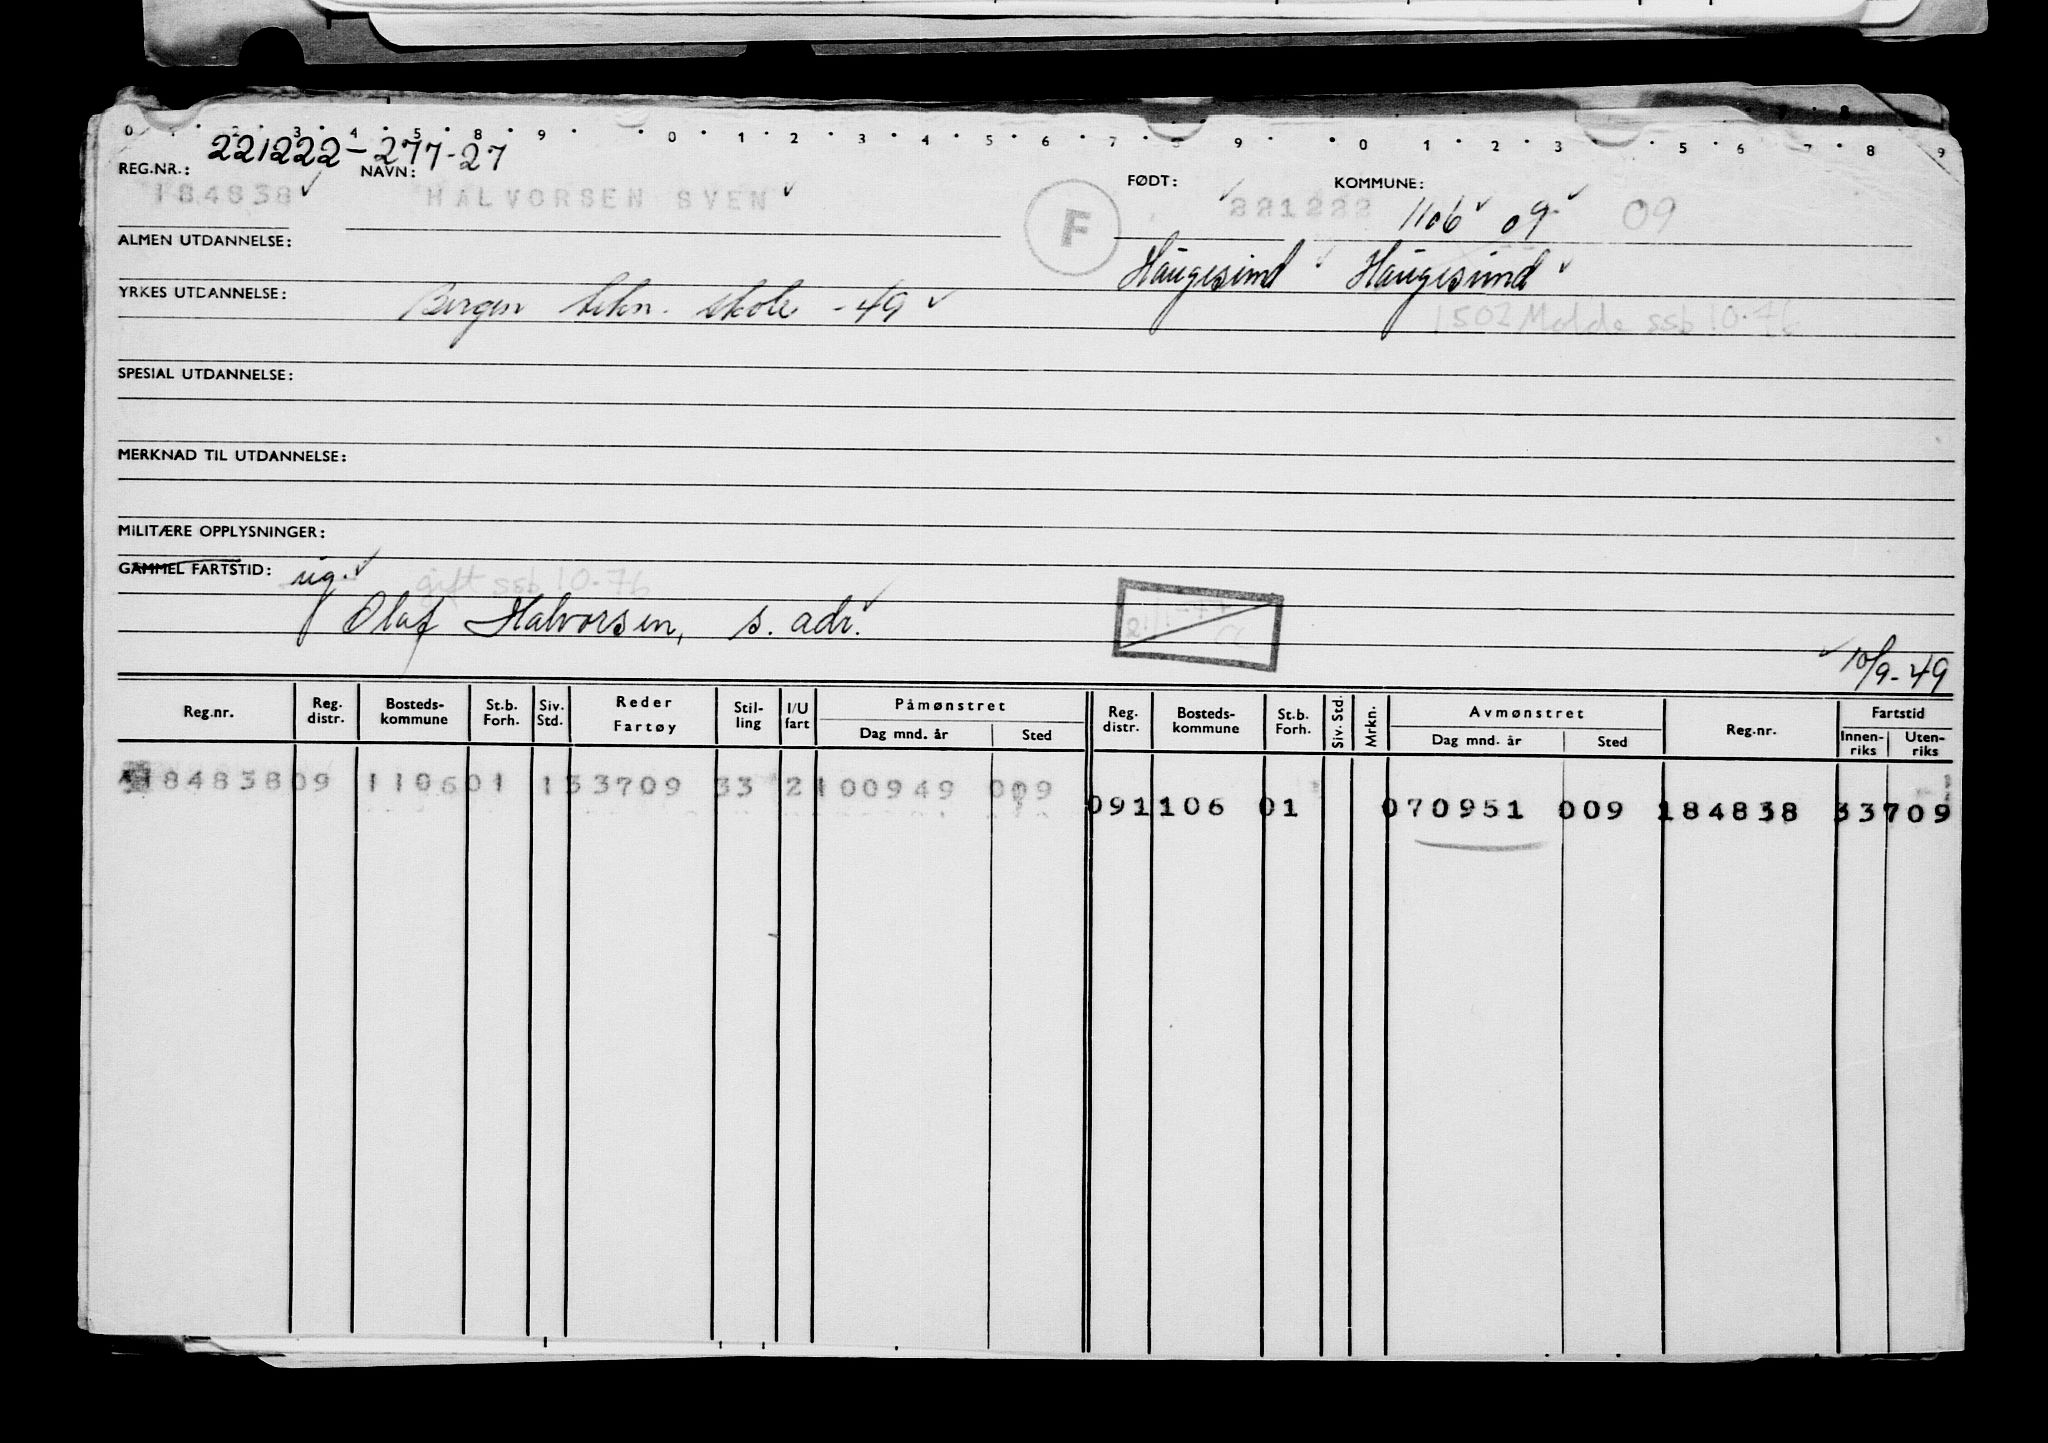 0 1 2 3 4 5 8 9 0 1 2 3 4 5 6 7 8 9 0 1 2 3 5 6 7 8 9
221222-277-27
REG.NR.: NAVN: FØDT: KOMMUNE:
184838 HALVORSEN SVEN F 221222 1106 09 09
ALMEN UTDANNELSE: Haugesund Haugesund
YRKES UTDANNELSE: Bergen tekn. skole -49
1502 Molde ssb 10-76
SPESIAL UTDANNELSE:
MERKNAD TIL UTDANNELSE:
MILITÆRE OPPLYSNINGER:
GAMMEL FARTSTID: ug. gift ssb 10-76
Olaf Halvorsen, s. adr.
10/9-49
Reg.nr. Reg. distr. Bosteds-kommune St.b. Forh. Siv. Std. Reder Fartøy Stil-ling I/U fart Påmønstret Dag mnd. år Sted Reg. distr. Bosteds-kommune St.b. Forh. Siv. Std. Mrkn. Avmønstret Dag mnd. år Sted Reg.nr. Fartstid Innen-riks Uten-riks
184838 09 1106 01 1 33709 33 2 100949 009
09 1106 01 070951 009 184838 33709